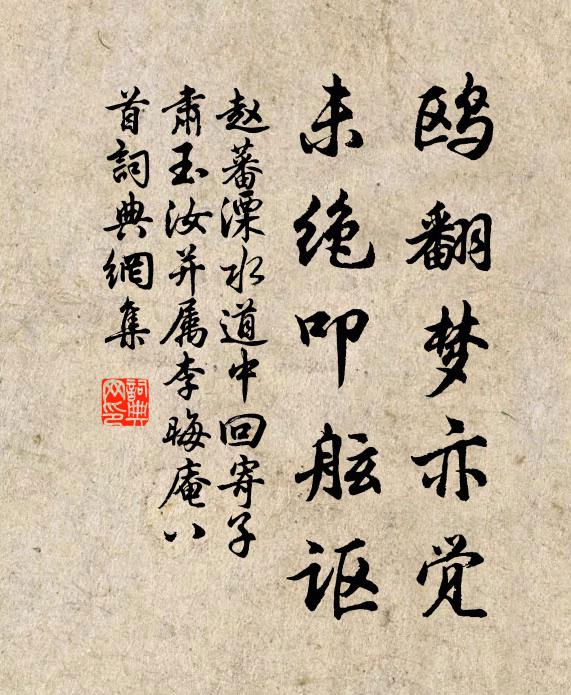 鸥翻梦亦觉
未绝叩舷讴
赵蕃溧水道中回寄子
肃玉汝并属李晦庵八
首詞典網集
詞典网印